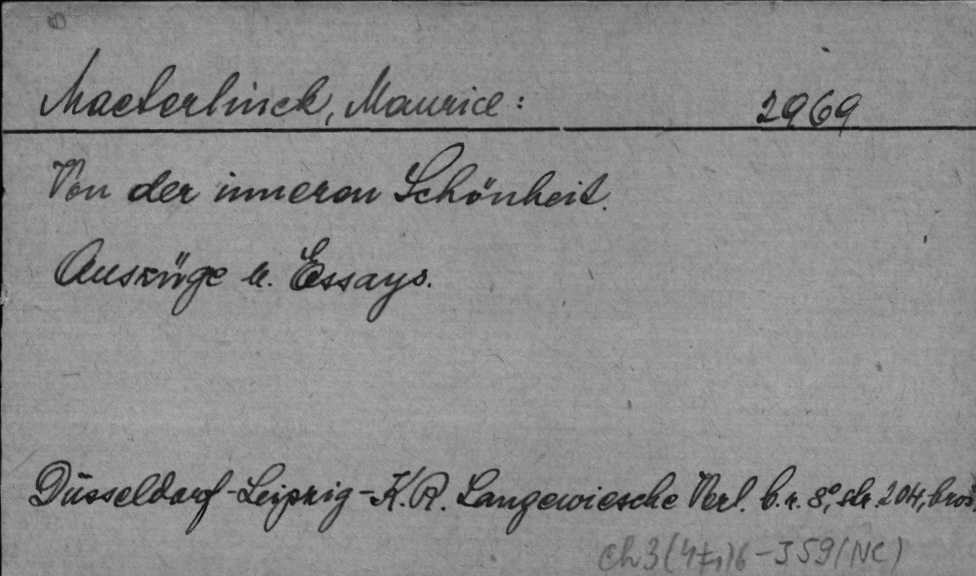 Maeterlinck, Maurice: 2969
Von der inneren Schönheit.
Auszüge u. Essays.
Düsseldorf-Leipzig-K.R. Langewiesche Verl. b.r. 8°, str. 204, broš.
-359 (NC)